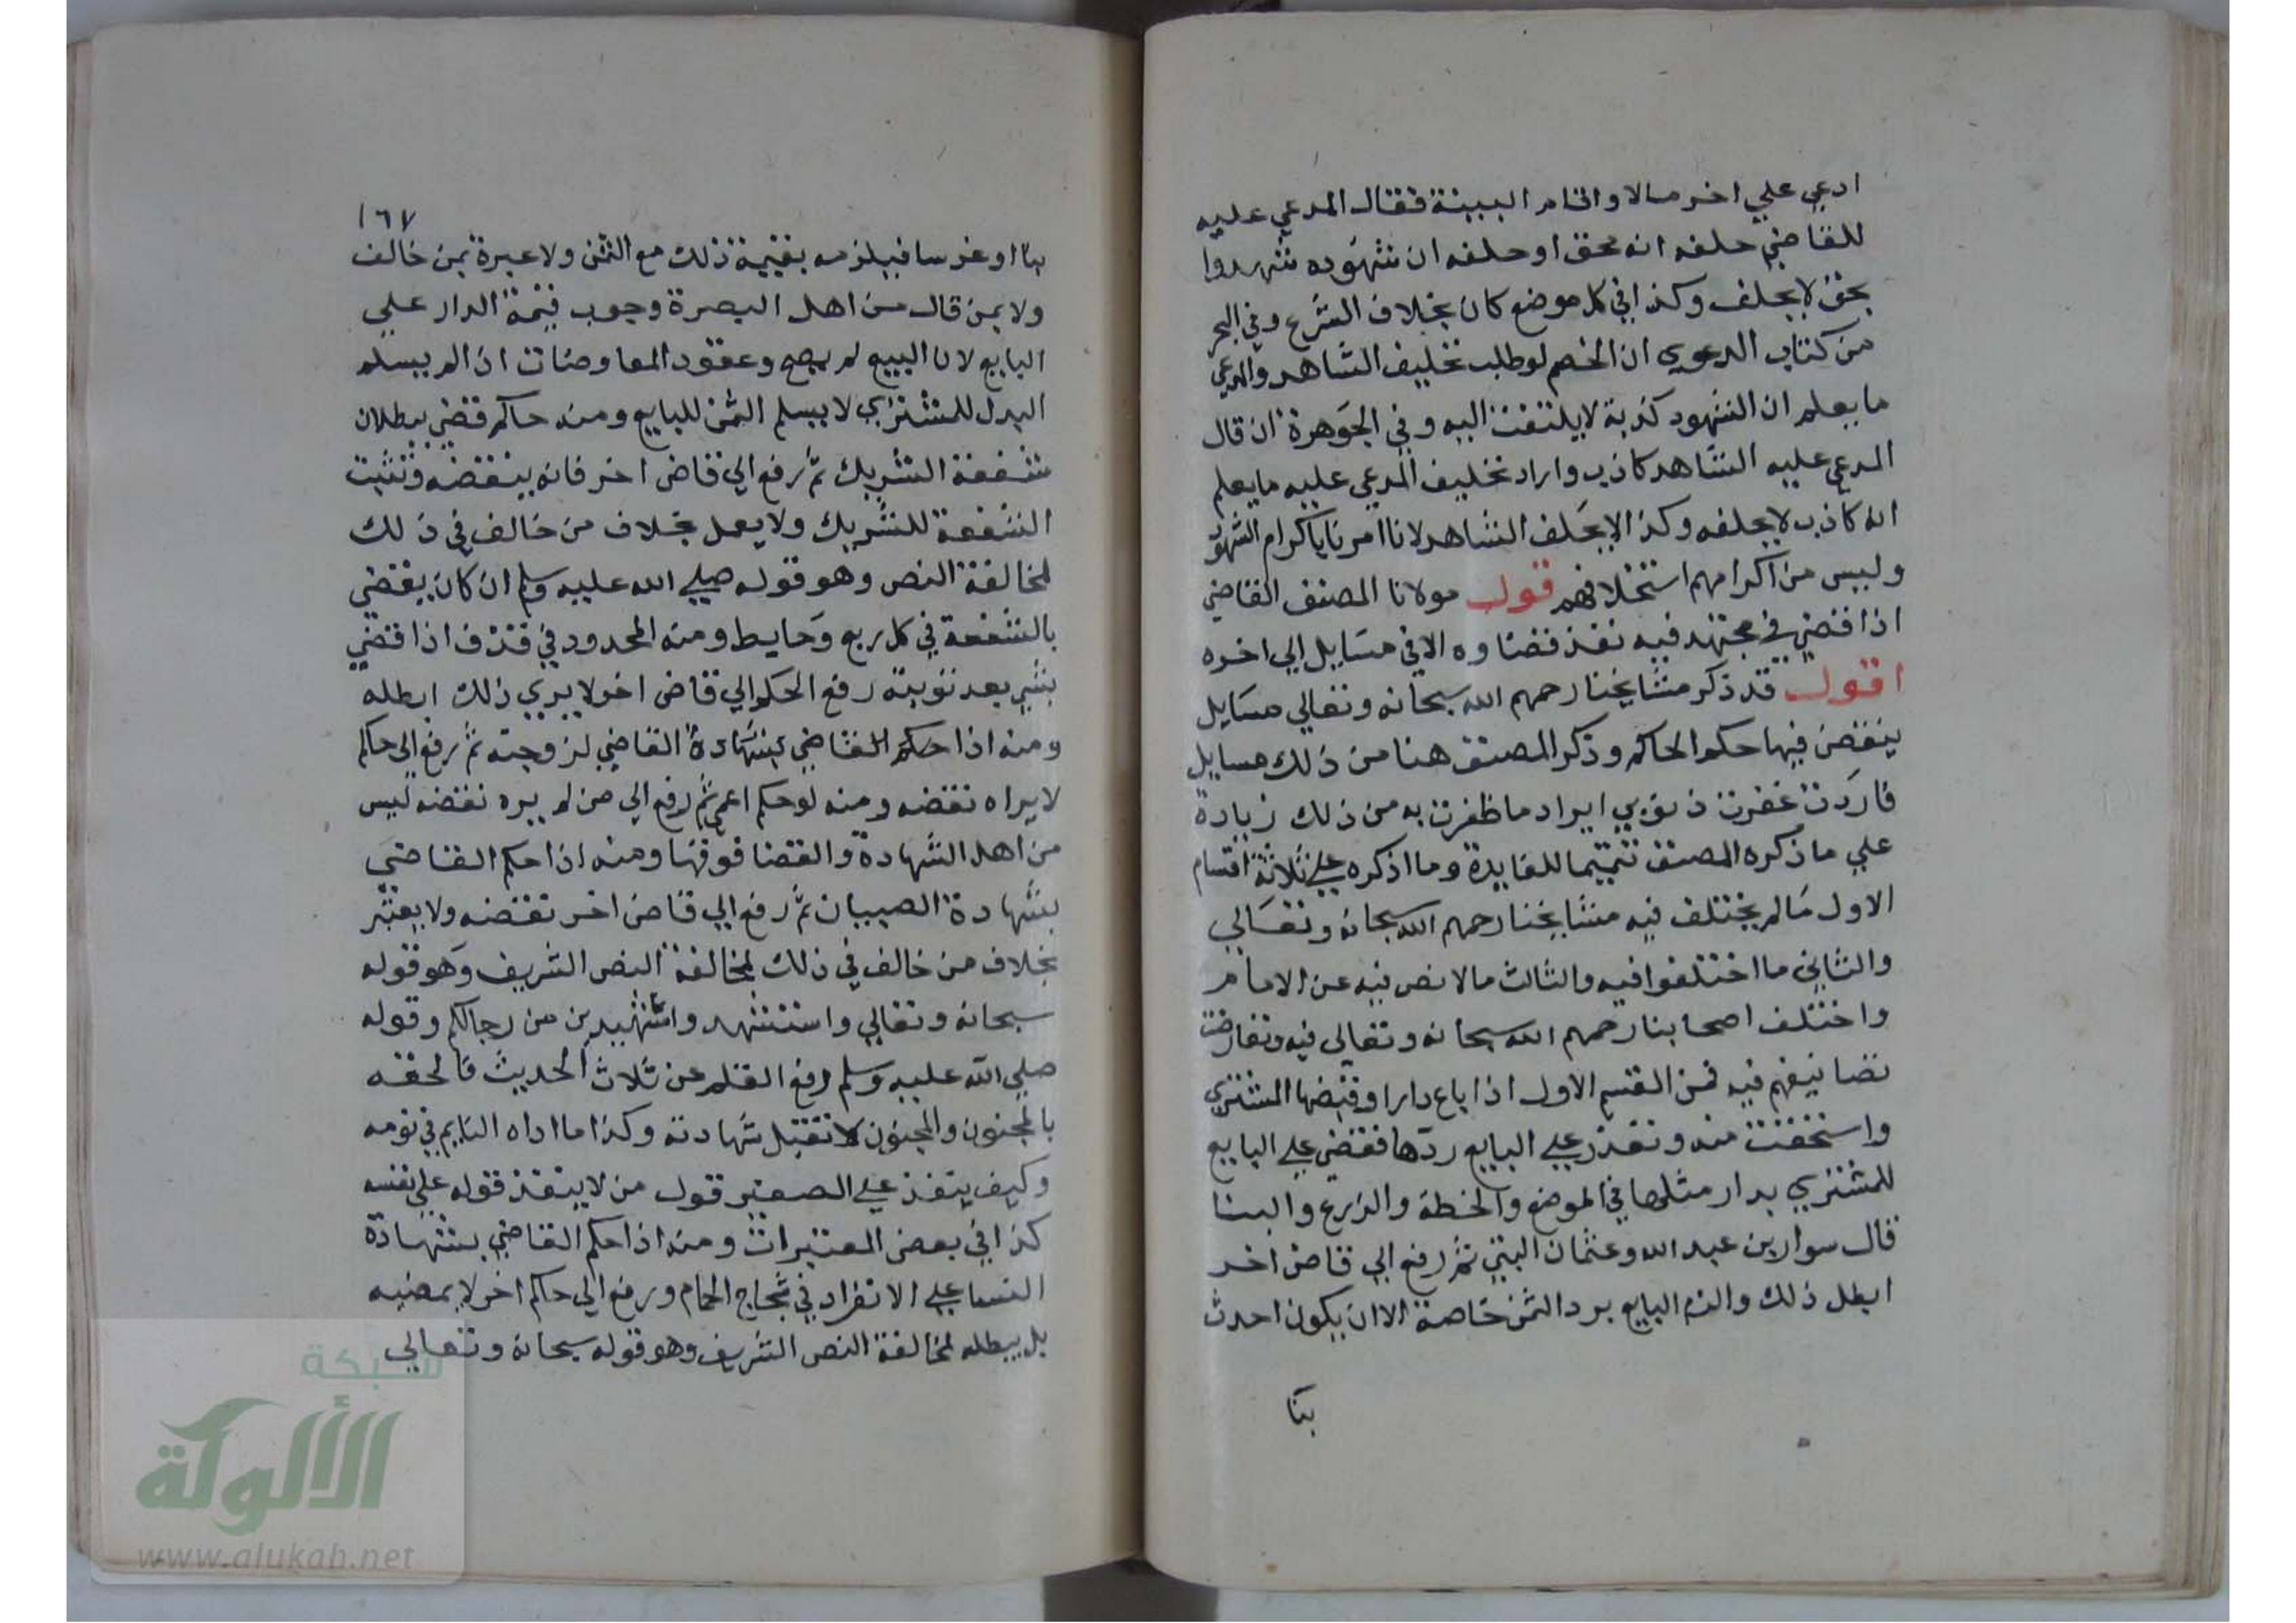 ادعي علي اخر مالا واقام البينة فقال المدعي عليه
للقاضي حلفه انه محق او حلفه ان شهوده شهدوا
بحق لا يحلف وكذا في كل موضع كان بخلاف الشرع وفي البحر
من كتاب الدعوي ان الخصم لو طلب تحليف الشاهد والمدعي
ما يعلم ان الشهود كذبة لا يلتفت اليه وفي الجوهرة ان قال
المدعي عليه الشاهد كاذب واراد تحليف المدعي عليه ما يعلم
انه كاذب لا يحلفه وكذا لا يحلف الشاهد لانا امرنا باكرام الشهود
وليس من اكرامهم استحلافهم قوله مولانا المصنف القاضي
اذا قضي في مجتهد فيه نفذ قضاوه الا في مسايل الي اخره
اقول قد ذكر مشايخنا رحمهم الله سبحانه وتعالي مسايل
ينقض فيها حكم الحاكم وذكر المصنف هنا من ذلك مسايل
فاردت غفرت ذنوبي ايراد ما ظفرت به من ذلك زيادة
علي ما ذكره المصنف تتميما للفايدة وما اذكره علي ثلاثة اقسام
الاول ما لم يختلف فيه مشايخنا رحمهم الله سبحانه وتعالي
والثاني ما اختلفوا فيه والثالث ما لا نص فيه عن الامام
واختلف اصحابنا رحمهم الله سبحانه وتعالي فيه وتعارضت
تصانيفهم فيه فمن القسم الاول اذا باع دارا وقبضها المشتري
واستحقت منه وتعذر علي البايع ردها فقضي علي البايع
للمشتري بدار مثلها في الموضع والخطة والذرع والبنا
قال سوار بن عبد الله وعثمان البتي ثم رفع الي قاض اخر
ابطل ذلك والزم البايع برد الثمن خاصة الا ان يكون احدث
بنا
١٦٧
بنا او غرسا فيلزمه بقيمة ذلك مع الثمن ولا عبرة بمن خالف
ولا بمن قال من اهل البصرة وجوب قيمة الدار علي
البايع لان البيع لم يصح وعقود المعاوضات اذا لم يسلم
البدل للمشتري لا يسلم الثمن للبايع ومنه حاكم قضي ببطلان
شفعة الشريك ثم رفع الي قاض اخر فانه ينقضه وتثبت
الشفعة للشريك ولا يعمل بخلاف من خالف في ذلك
لمخالفة النص وهو قوله صلي الله عليه وسلم ان كان يقضي
بالشفعة في كل ربع وحايط ومنه المحدود في قذف اذا قضي
بشي بعد توبته رفع الحكم الي قاض اخر لا يري ذلك ابطله
ومنه اذا حكم القاضي بشهادة القاضي لزوجته ثم رفع الي حاكم
لا يراه نقضه ومنه لو حكم اعمي ثم رفع الي من لم يره نقضه ليس
من اهل الشهادة والقضا فوقها ومنه اذا حكم القاضي
بشهادة الصبيان ثم رفع الي قاض اخر نقضه ولا يعتبر
بخلاف من خالف في ذلك لمخالفة النص الشريف وهو قوله
سبحانه وتعالي واستشهدوا شهيدين من رجالكم وقوله
صلي الله عليه وسلم رفع القلم عن ثلاث الحديث فالحقه
بالمجنون والمجنون لا تقبل شهادته وكذا ما اداه النايم في نومه
وكيف ينفذ علي الصغير قول من لا ينفذ قوله علي نفسه
كذا في بعض المعتبرات ومنه اذا حكم القاضي بشهادة
النسا علي الانفراد في شجاج الحمام ورفع الي حاكم اخر لا يمضيه
بل يبطله لمخالفة النص الشريف وهو قوله سبحانه وتعالي
شبكة
الألوكة
www.alukah.net